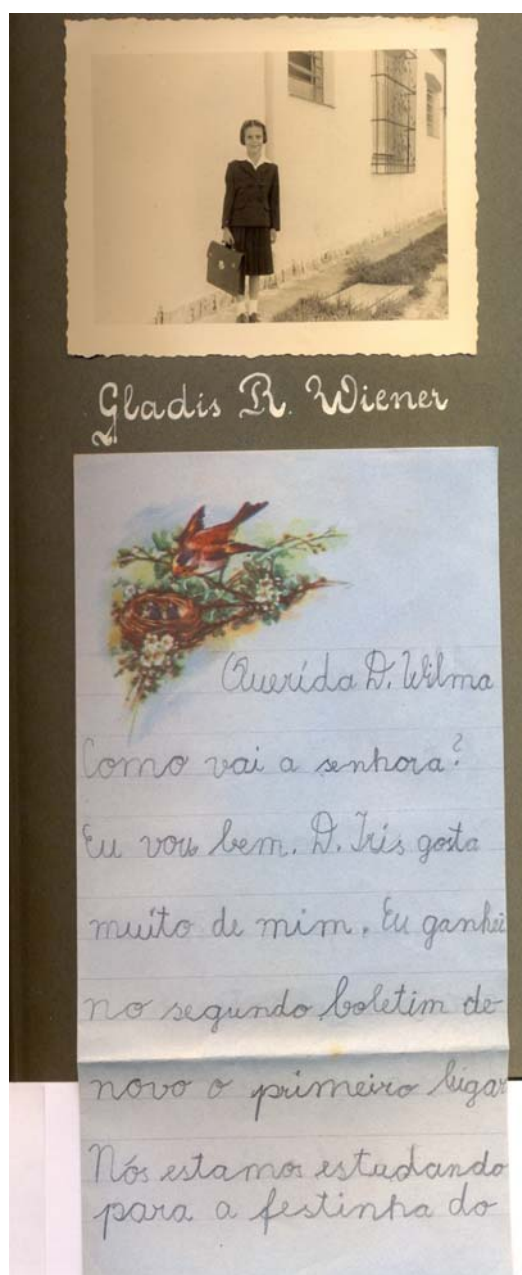 Gladis R. Wiener
Querida D. Wilma
Como vai a senhora?
Eu vou bem. D. Iris gosta
muito de mim. Eu ganhei
no segundo boletim de
novo o primeiro lugar
Nós estamos estudando
para a festinha do